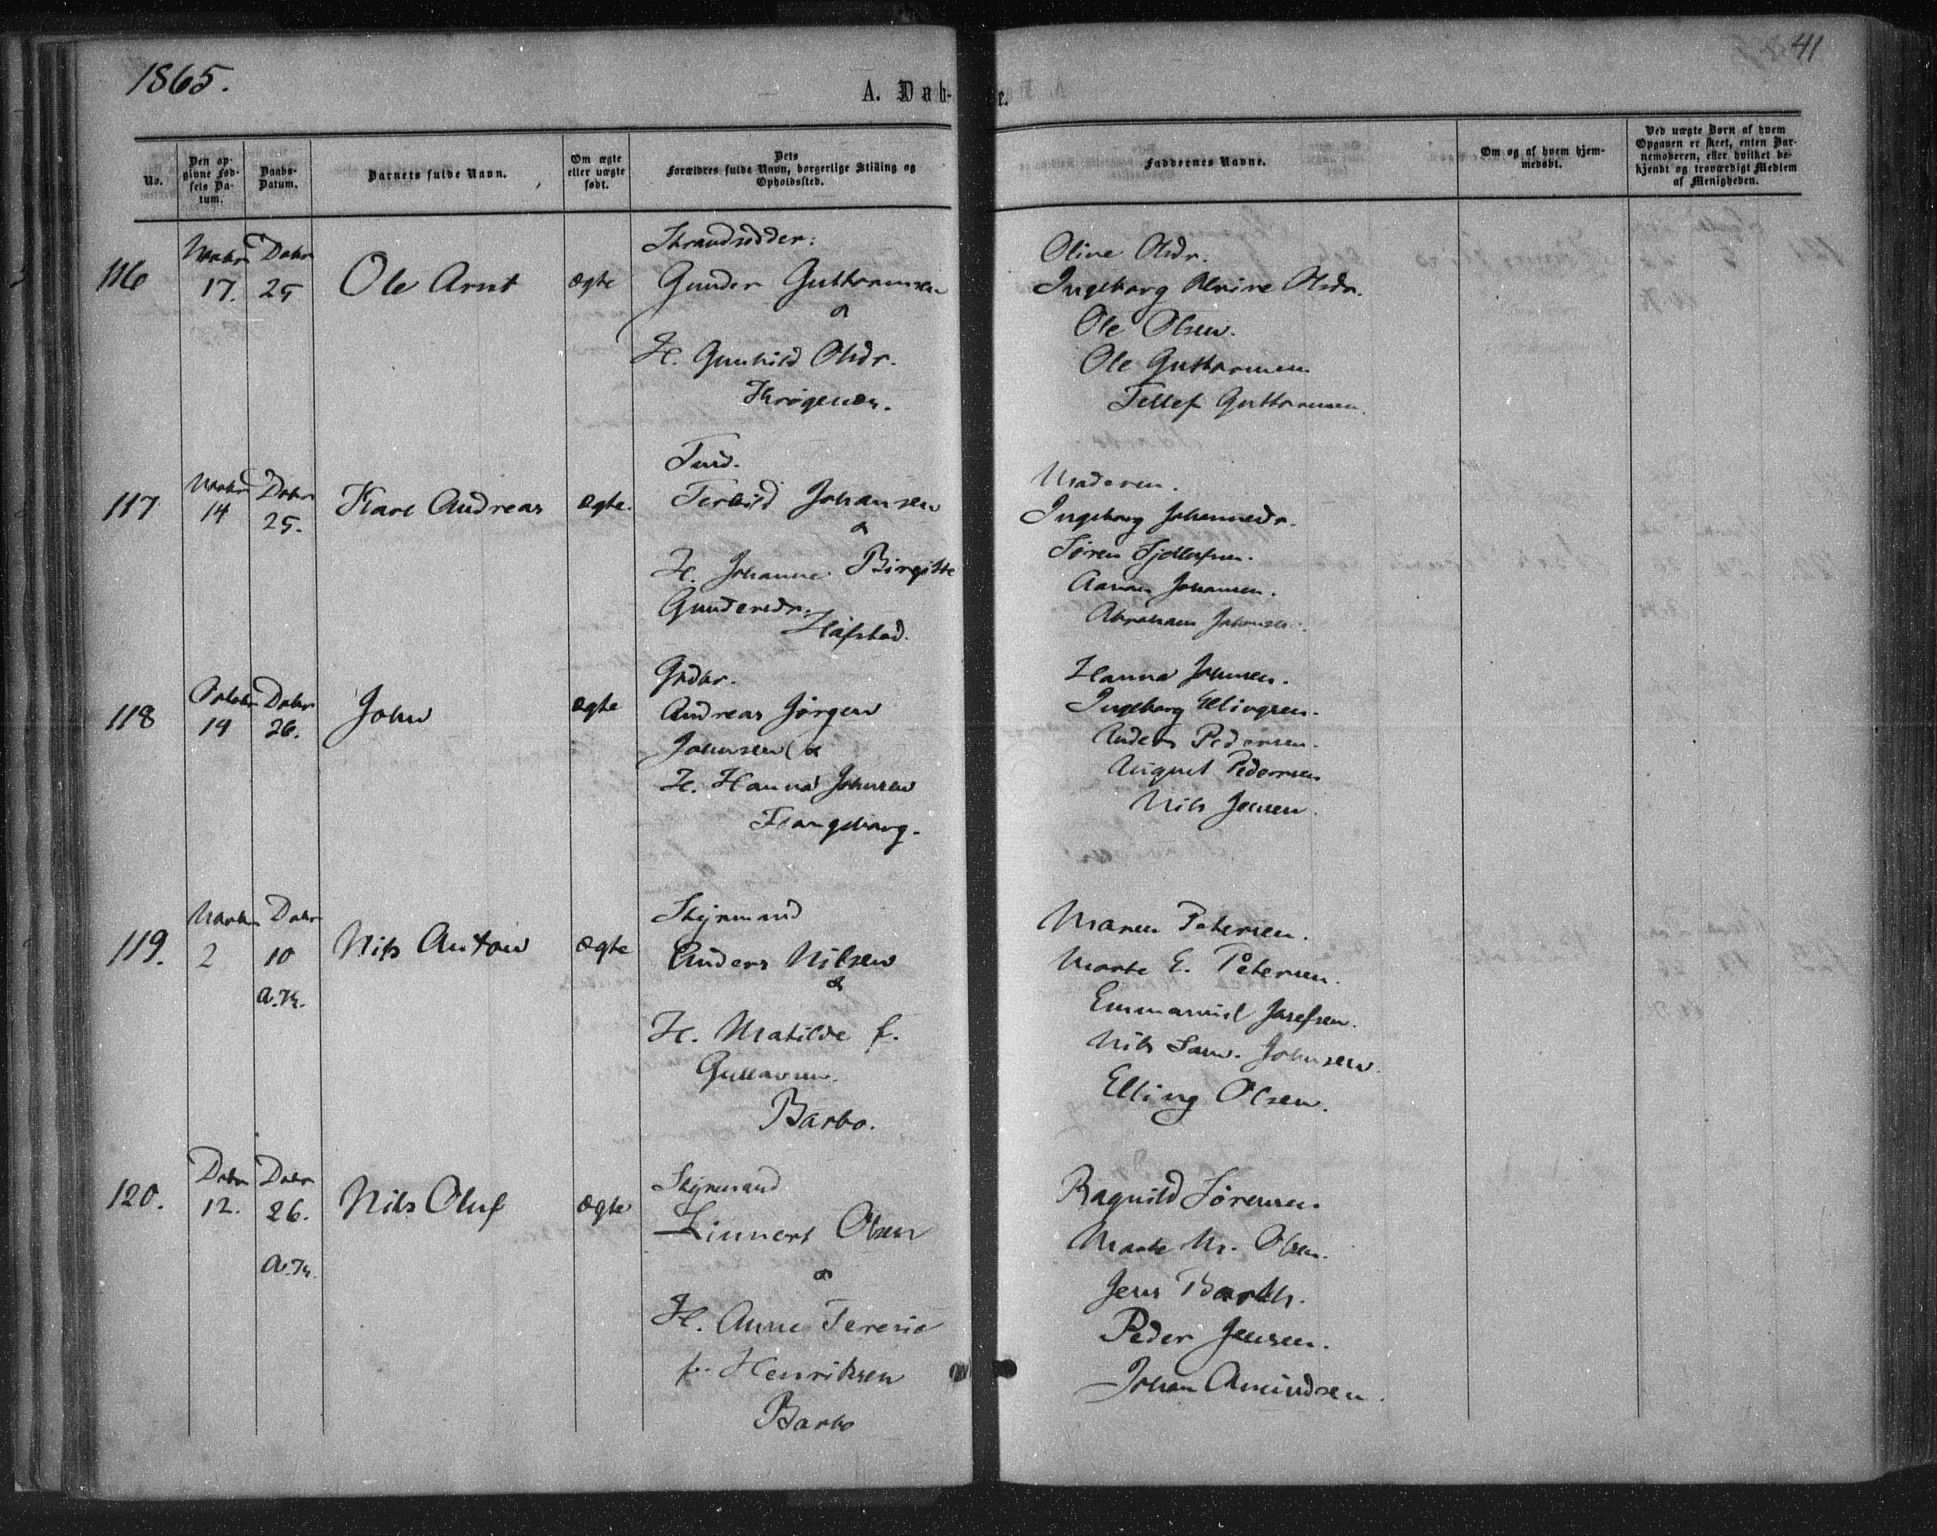 1865.
41
A. Døbte.
No.
Den opgivne Fødsels Datum.
Daabs-Datum.
Barnets fulde Navn.
Om ægte eller uægte født.
Dets Forældres fulde Navn, borgerlige Stilling og Opholdssted.
Faddernes Navne.
Om og af hvem hjemmedøbt.
Ved uægte Børn af hvem Opgaven er skeet, enten Barnemoderen, eller hvilket bekjendt og troværdigt Medlem af Menigheden.
116
17.
Decbr
25
Ole Arnt
ægte
Strandsidder:
Gunder Guttormsen
&
H. Gunhild Olsdr.
Olive Olsdr.
Ingeborg Olsdr.
Ole Olsen.
Ole Guttormsen
Tellef Guttormsen
117
14
Decbr
25.
Karl Andreas
ægte.
Johansen
&
H. Johanne Birgitte
Gundersdr.
Håfstad.
Moderen.
Ingeborg Johannesdr.
Søren
Aanon Johansen.
Abraham Johansen.
118
19
Decbr
26.
John
ægte
Grdbr.
Andreas Jørgen
Johnsen &
H. Hanna Johnsen
Hanna Johnsen.
Ingeborg Ellingsen.
Anders Pedersen.
August Pedersen
Nils Jensen.
119.
2
Decbr
10
a.K.
Nils Anton
ægte
Styrmand
Anders Nilsen
&
H. Matilde f.
Barbo.
Maren Petersen.
Marte E. Petersen.
Emmanuel Josefsen.
Nils Johnsen.
Elling Olsen.
120.
Decbr
12.
Decbr
26.
a.K.
Nils Oluf
ægte
Styrmand
Linnert Olsen
&
H. Anne Teresie
f. Henriksen
Barbo
Ragnild Sørensen.
Marte M. Olsen.
Jens Barth.
Peder Jensen.
Johan Amundsen.